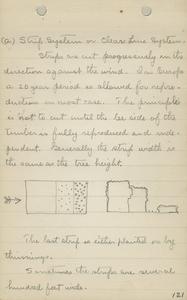 (a) Strip System or Clear Line System.
Strips are cut progressively in the
direction against the wind. In Europe
a 20 year period is allowed for repro-
duction in most case. The principle
is not to cut until the lee side of the
timber is fully reproduced and inde-
pendent. Generally the strip width is
the same as the tree height.
The last strip is either planted or by
thinnings.
Sometimes the strips are several
hundred feet wide.
121